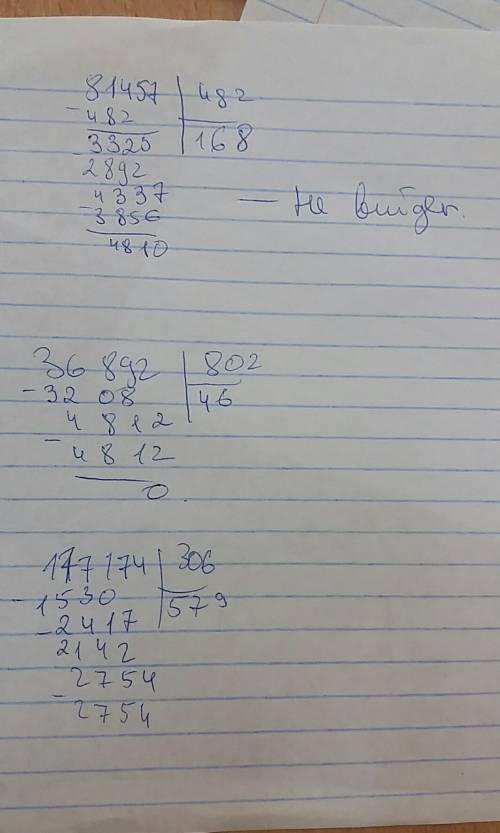 81457 | 482
- 482 | 168
3325
2892
4337
- 3856
4810
— Не выйдет.
36 892 | 802
- 32 08 | 46
4 812
- 4 8 12
0.
177174 | 306
- 1530 | 579
- 2417
2142
- 2754
2754